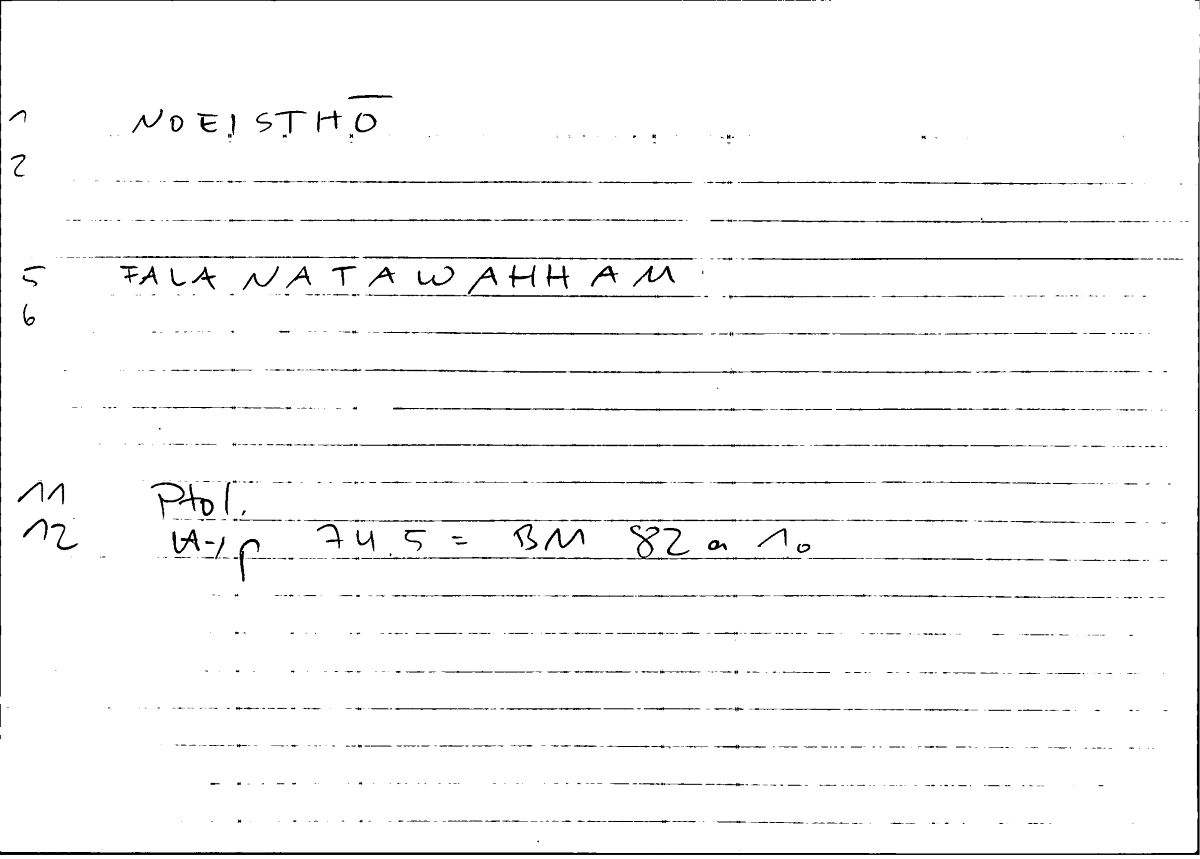 1 NOEISTHŌ
2
5 FALA NATAWAHHAM
6
11 Ptol.
12 74.5 = BM 82 a 10